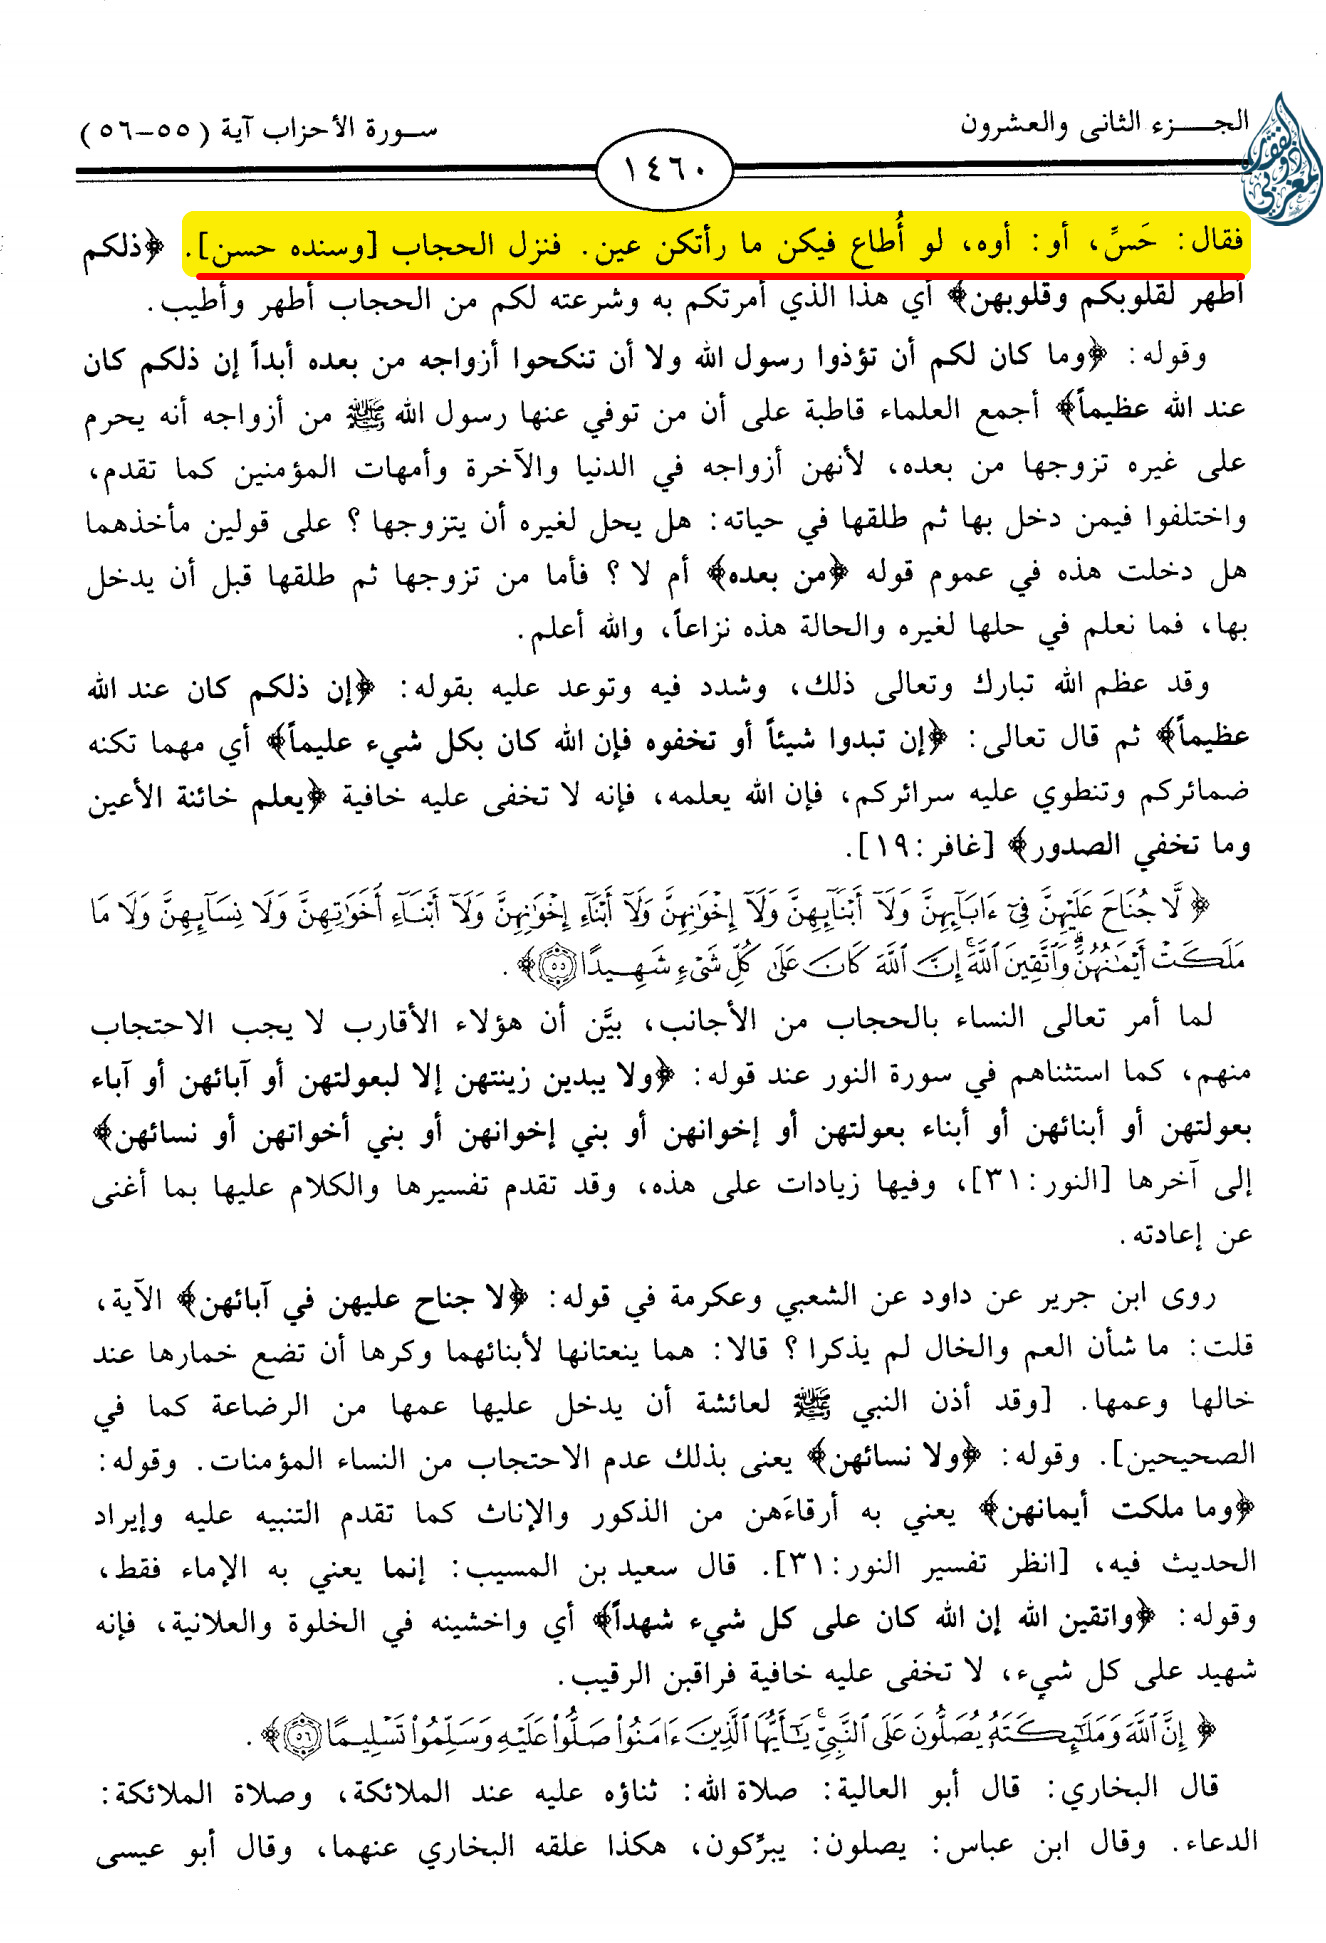 الجـــزء الثانى والعشرون
سـورة الأحزاب آية (٥٥-٥٦)
١٤٦٠
فقال: حَسِّ، أو: أوه، لو أُطاع فيكن ما رأتكن عين. فنزل الحجاب [وسنده حسن]. ﴿ذلكم
أطهر لقلوبكم وقلوبهن﴾ أي هذا الذي أمرتكم به وشرعته لكم من الحجاب أطهر وأطيب.
وقوله: ﴿وما كان لكم أن تؤذوا رسول الله ولا أن تنكحوا أزواجه من بعده أبداً إن ذلكم كان
عند الله عظيماً﴾ أجمع العلماء قاطبة على أن من توفي عنها رسول الله ﷺ من أزواجه أنه يحرم
على غيره تزوجها من بعده، لأنهن أزواجه في الدنيا والآخرة وأمهات المؤمنين كما تقدم،
واختلفوا فيمن دخل بها ثم طلقها في حياته: هل يحل لغيره أن يتزوجها؟ على قولين مأخذهما
هل دخلت هذه في عموم قوله ﴿من بعده﴾ أم لا؟ فأما من تزوجها ثم طلقها قبل أن يدخل
بها، فما نعلم في حلها لغيره والحالة هذه نزاعاً، والله أعلم.
وقد عظم الله تبارك وتعالى ذلك، وشدد فيه وتوعد عليه بقوله: ﴿إن ذلكم كان عند الله
عظيماً﴾ ثم قال تعالى: ﴿إن تبدوا شيئاً أو تخفوه فإن الله كان بكل شيء عليماً﴾ أي مهما تكنه
ضمائركم وتنطوي عليه سرائركم، فإن الله يعلمه، فإنه لا تخفى عليه خافية ﴿يعلم خائنة الأعين
وما تخفي الصدور﴾ [غافر:١٩].
﴿لَّا جُنَاحَ عَلَيْهِنَّ فِىٓ ءَابَآئِهِنَّ وَلَآ أَبْنَآئِهِنَّ وَلَآ إِخْوَٰنِهِنَّ وَلَآ أَبْنَآءِ إِخْوَٰنِهِنَّ وَلَآ أَبْنَآءِ أَخَوَٰتِهِنَّ وَلَا نِسَآئِهِنَّ وَلَا مَا
مَلَكَتْ أَيْمَٰنُهُنَّ ۗ وَٱتَّقِينَ ٱللَّهَ ۚ إِنَّ ٱللَّهَ كَانَ عَلَىٰ كُلِّ شَىْءٍ شَهِيدًا ٥٥﴾.
لما أمر تعالى النساء بالحجاب من الأجانب، بيَّن أن هؤلاء الأقارب لا يجب الاحتجاب
منهم، كما استثناهم في سورة النور عند قوله: ﴿ولا يبدين زينتهن إلا لبعولتهن أو آبائهن أو آباء
بعولتهن أو أبنائهن أو أبناء بعولتهن أو إخوانهن أو بني إخوانهن أو بني أخواتهن أو نسائهن﴾
إلى آخرها [النور:٣١]، وفيها زيادات على هذه، وقد تقدم تفسيرها والكلام عليها بما أغنى
عن إعادته.
روى ابن جرير عن داود عن الشعبي وعكرمة في قوله: ﴿لا جناح عليهن في آبائهن﴾ الآية،
قلت: ما شأن العم والخال لم يذكرا؟ قالا: هما ينعتانها لأبنائهما وكرها أن تضع خمارها عند
خالها وعمها. [وقد أذن النبي ﷺ لعائشة أن يدخل عليها عمها من الرضاعة كما في
الصحيحين]. وقوله: ﴿ولا نسائهن﴾ يعنى بذلك عدم الاحتجاب من النساء المؤمنات. وقوله:
﴿وما ملكت أيمانهن﴾ يعني به أرقاءَهن من الذكور والإناث كما تقدم التنبيه عليه وإيراد
الحديث فيه، [انظر تفسير النور:٣١]. قال سعيد بن المسيب: إنما يعني به الإماء فقط،
وقوله: ﴿واتقين الله إن الله كان على كل شيء شهداً﴾ أي واخشينه في الخلوة والعلانية، فإنه
شهيد على كل شيء، لا تخفى عليه خافية فراقبن الرقيب.
﴿إِنَّ ٱللَّهَ وَمَلَٰٓئِكَتَهُۥ يُصَلُّونَ عَلَى ٱلنَّبِىِّ ۚ يَٰٓأَيُّهَا ٱلَّذِينَ ءَامَنُوا۟ صَلُّوا۟ عَلَيْهِ وَسَلِّمُوا۟ تَسْلِيمًا ٥٦﴾.
قال البخاري: قال أبو العالية: صلاة الله: ثناؤه عليه عند الملائكة، وصلاة الملائكة:
الدعاء. وقال ابن عباس: يصلون: يبرِّكون، هكذا علقه البخاري عنهما، وقال أبو عيسى